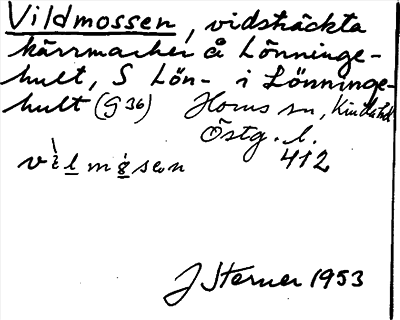 Vildmossen, vidsträckta
kärrmarker å Lönninge-
hult, S Lön- i Lönninge-
hult (G 36) Horns sn, Kinda hd
Östg. l.
vìlmósen 412
J Sterner 1953